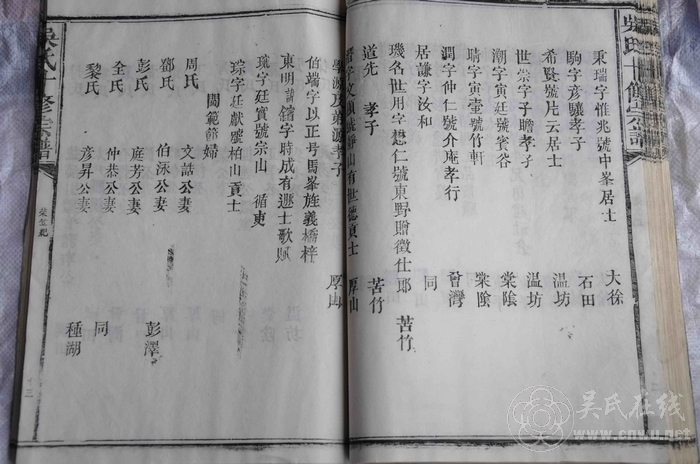 吳氏十修宗譜
秉瑞字惟兆號中峯居士 大徐
駒字彥驤孝子 石田
希賢號片云居士 温坊
世崇字子瞻孝子 温坊
潮字寅廷號賓谷 棠陰
晴字寅臺號竹軒 棠陰
潤字仲仁號介庵孝行 曾灣
居謙字汝和 同
璣名世用字懋仁號東野贈徵仕郎 苦竹
道先 孝子 苦竹
字文 號靜山有世德貢士 厚山
學源及弟源孝子 厚山
伯端字以正号馬峯旌義橋梓
東明 字時成有遯士歌賦
璣字廷賓號宗山 循吏
琮字廷獻號柏山貢士
閫範節婦
周氏 文誥公妻
鄧氏 伯泳公妻 彭澤
彭氏 庭芳公妻
全氏 仲恭公妻 同
黎氏 彥昇公妻 種湖
吳氏十修宗譜
十三
吴氏在线
www.cnwu.net